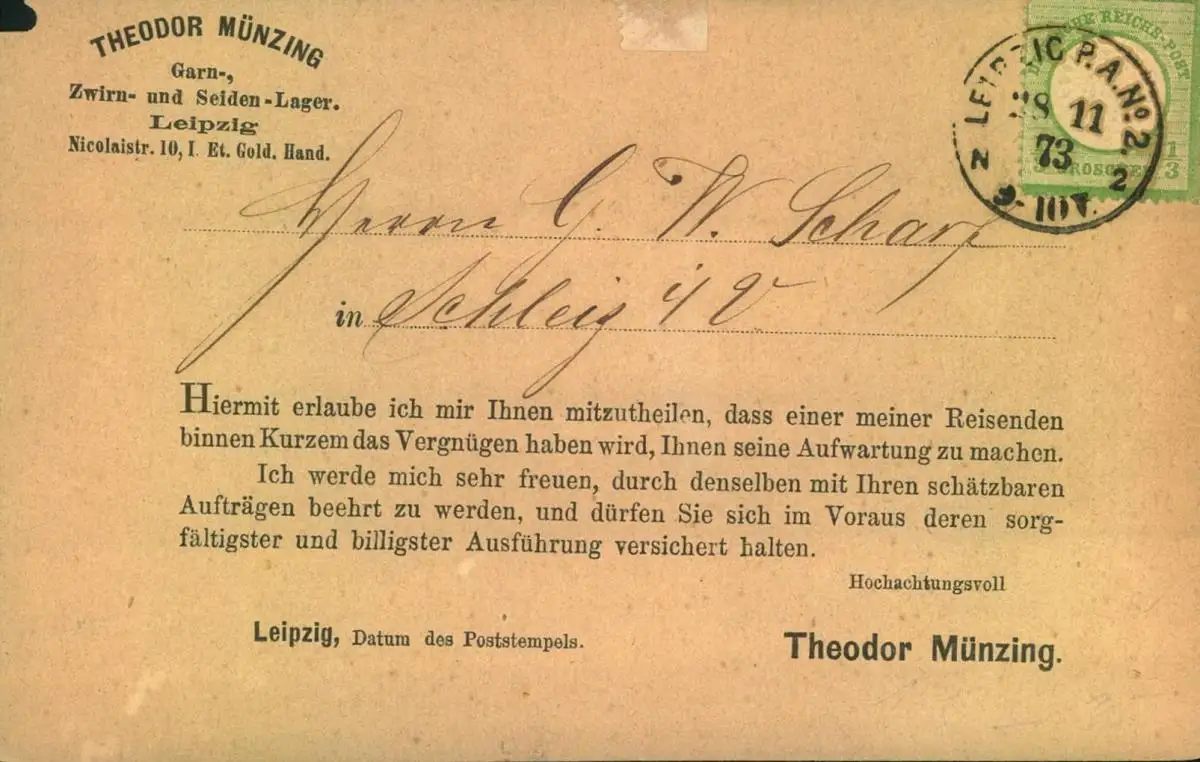 THEODOR MÜNZING
Garn-,
Zwirn- und Seiden-Lager.
Leipzig
Nicolaistr. 10, I. Et. Gold. Hand.
REICHS-POST
1/3
GROSCHEN
LEIPZIG P.A. No. 2.
28 11
73
9-10 V.
Herrn G. W. Scharf
in Schleiz i/V
Hiermit erlaube ich mir Ihnen mitzutheilen, dass einer meiner Reisenden
binnen Kurzem das Vergnügen haben wird, Ihnen seine Aufwartung zu machen.
Ich werde mich sehr freuen, durch denselben mit Ihren schätzbaren
Aufträgen beehrt zu werden, und dürfen Sie sich im Voraus deren sorg-
fältigster und billigster Ausführung versichert halten.
Hochachtungsvoll
Leipzig, Datum des Poststempels.
Theodor Münzing.